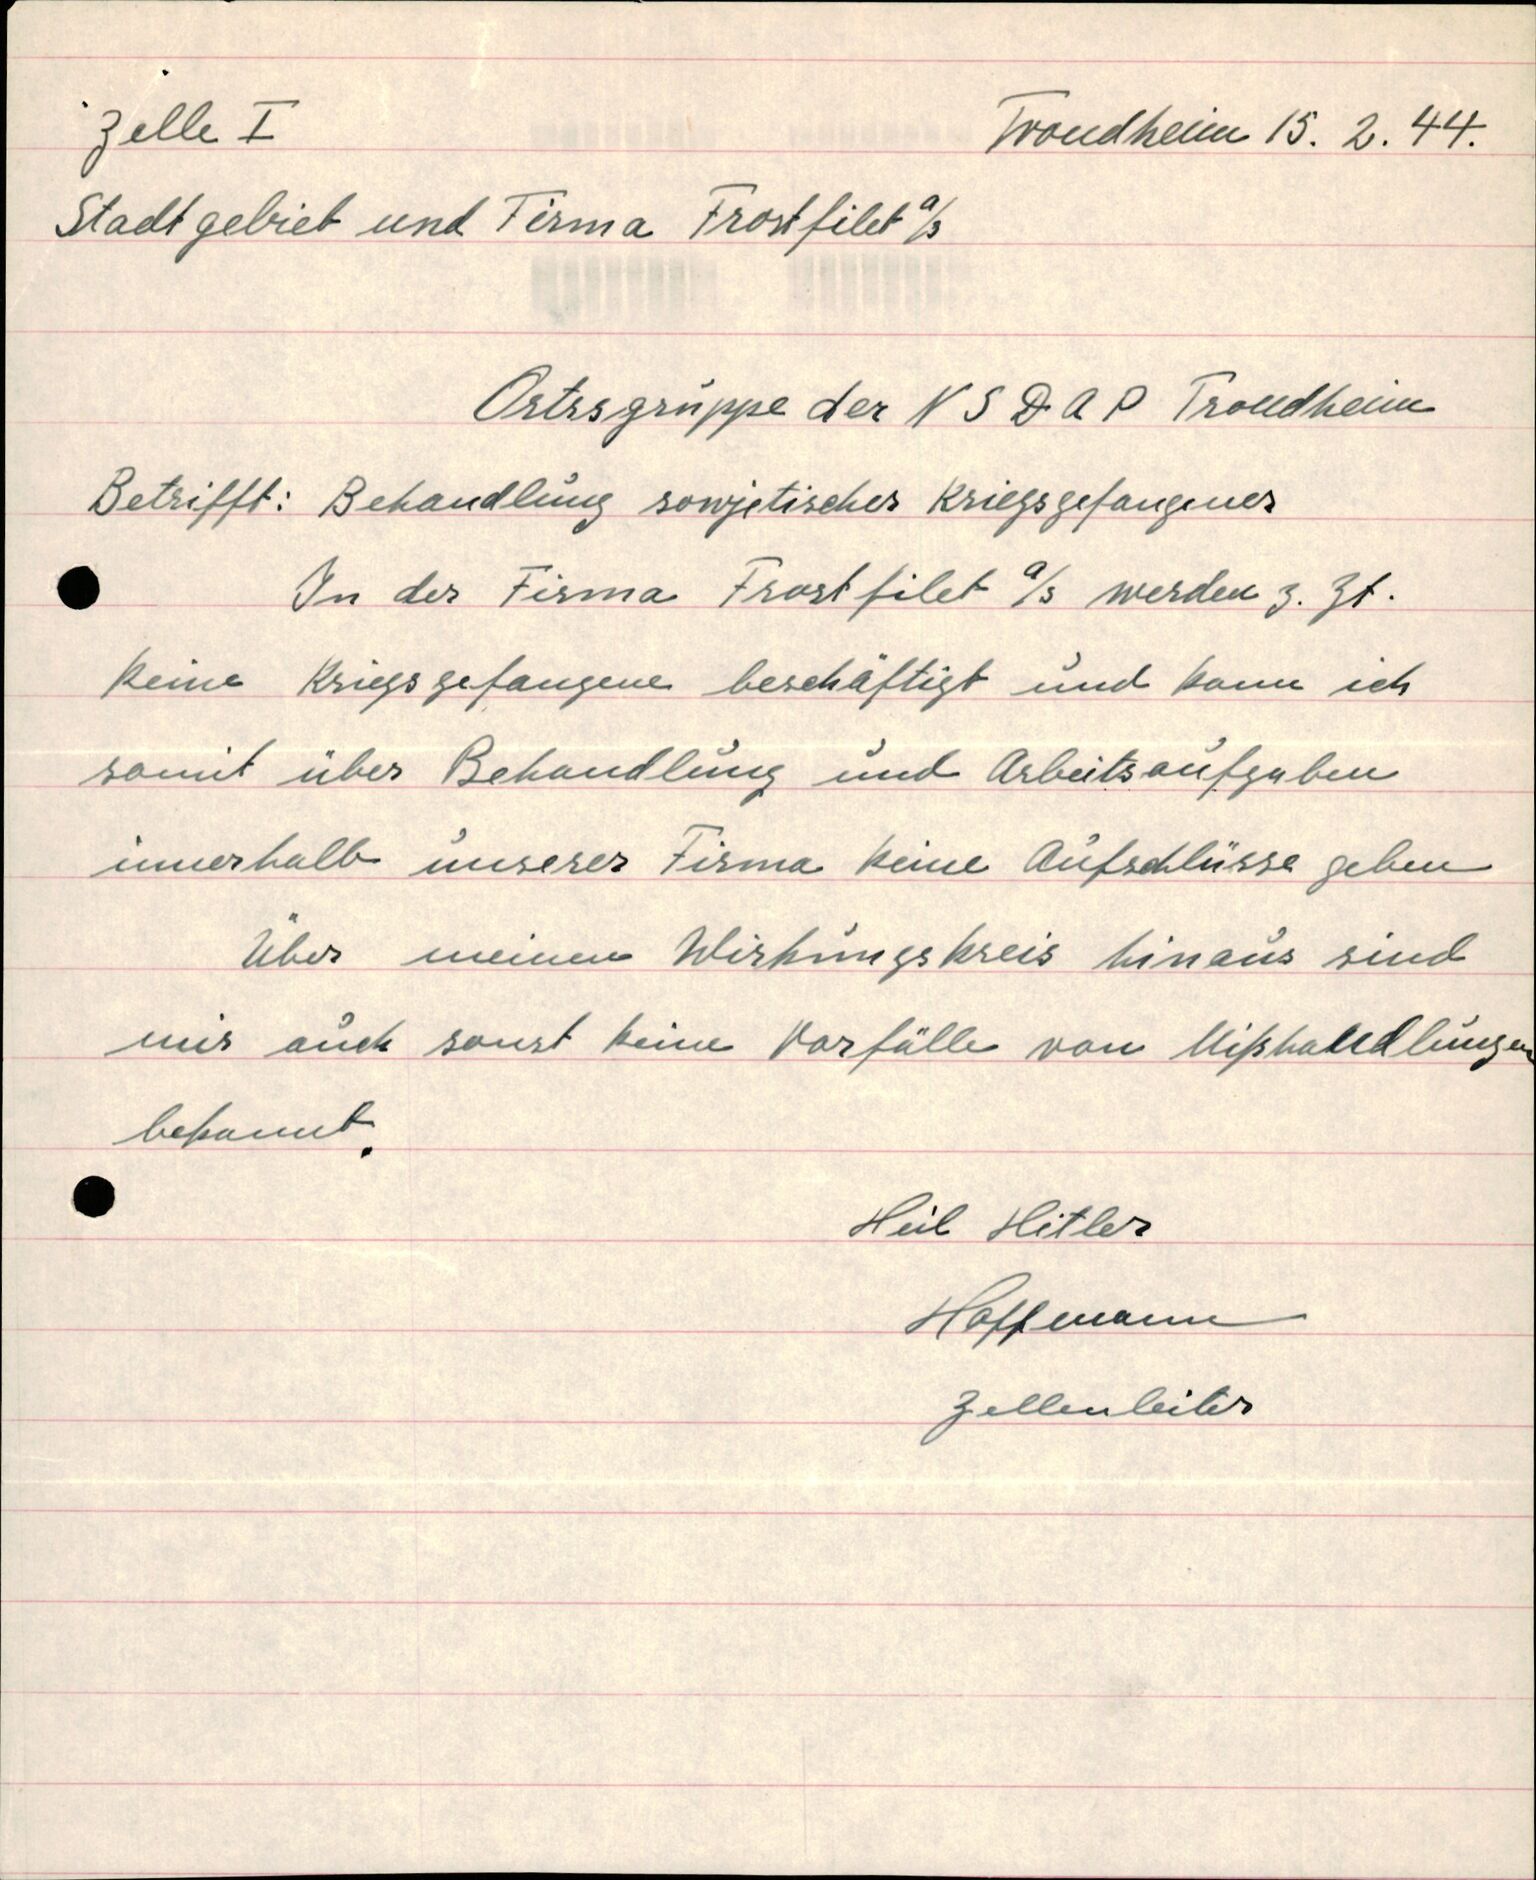 Zelle I
Trondheim 15. 2. 44.
Stadtgebiet und Firma Frostfilet a/s
Ortsgruppe der N S D A P Trondheim
Betrifft: Behandlung sowjetischer Kriegsgefangener
In der Firma Frostfilet a/s werden z. Zt.
keine Kriegsgefangene beschäftigt und kann ich
somit über Behandlung und Arbeitsaufgaben
innerhalb unserer Firma keine Aufschlüsse geben
Über meinen Wirkungskreis hinaus sind
mir auch sonst keine Vorfälle von Mißhandlungen
bekannt.
Heil Hitler
Hoffmann
Zellenleiter